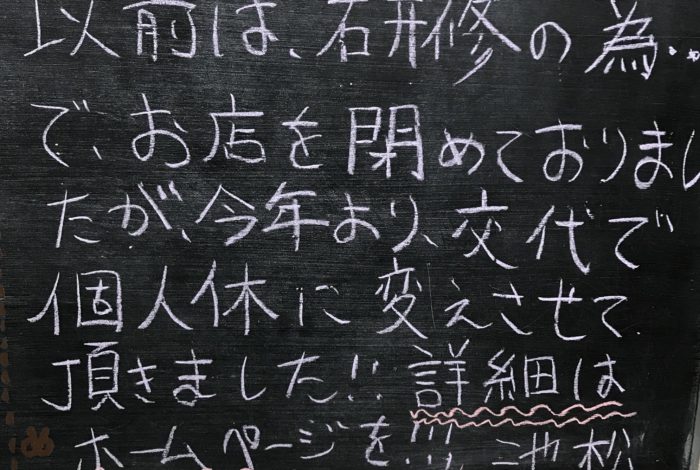 以前は、研修の為‥
で、お店を閉めておりまし
たが、今年より、交代で
個人休に変えさせて
頂きました!! 詳細は
ホームページを!!! 池松